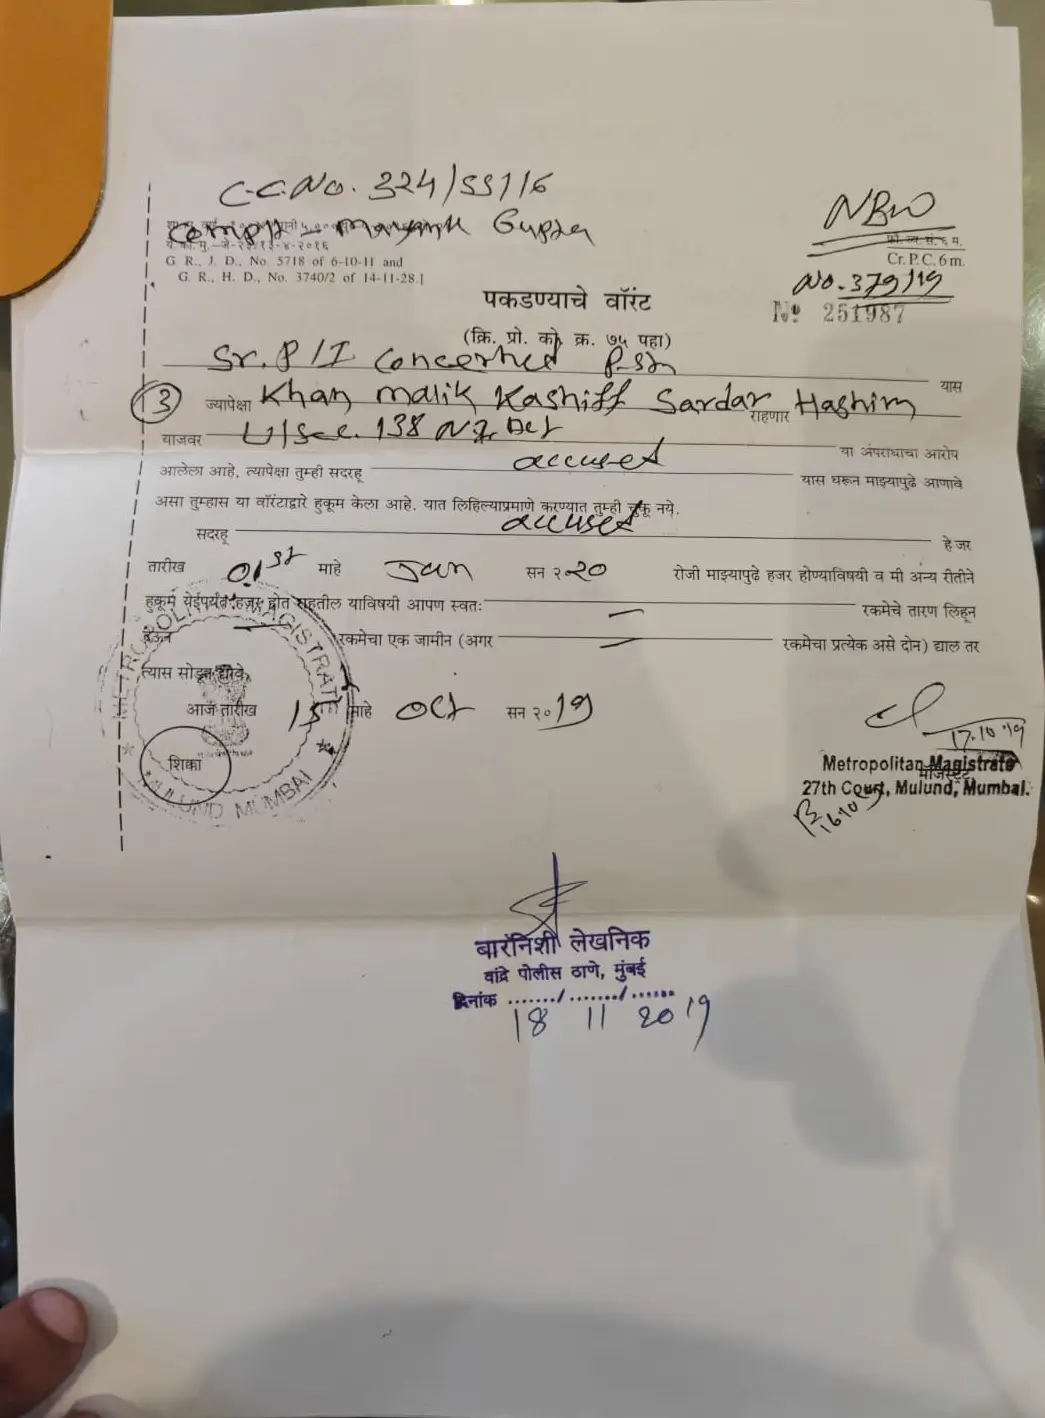 C.C.No. 324/SS/16
Compt - Mayank Gupta
NBW
No. 379/19
G. R., J. D., No. 5718 of 6-10-11 and
G. R., H. D., No. 3740/2 of 14-11-28.]
फौ. व्य. सं. ६ म.
Cr. P. C. 6 m.
Nº 251987
पकडण्याचे वॉरंट
(क्रि. प्रो. को. क्र. ७५ पहा)
Sr. P/I Concerned P.Stn
यास
③ ज्यापेक्षा Khan Malik Kashiff Sardar राहणार Hashim
याजवर U/Sec. 138 N.I. Act या अपराधाचा आरोप
आलेला आहे, त्यापेक्षा तुम्ही सदरहू accused यास धरून माझ्यापुढे आणावे
असा तुम्हास या वॉरंटाद्वारे हुकूम केला आहे. यात लिहिल्याप्रमाणे करण्यात तुम्ही चुकू नये.
सदरहू accused हे जर
तारीख 01st माहे Jan सन २०20 रोजी माझ्यापुढे हजर होण्याविषयी व मी अन्य रीतीने
हुकूम येईपर्यंत हजर होत राहतील याविषयी आपण स्वतः — रकमेचे तारण लिहून
देऊन — रकमेचा एक जामीन (अगर — रकमेचा प्रत्येक असे दोन) द्याल तर
त्यास सोडून द्यावे.
आज तारीख 15th माहे Oct सन २०19
शिक्का
METROPOLITAN MAGISTRATE
MULUND MUMBAI
17.10.19
Metropolitan Magistrate
मॅजिस्ट्रेट
27th Court, Mulund, Mumbai.
16/10/19
बारनिशी लेखनिक
वांद्रे पोलीस ठाणे, मुंबई
दिनांक ......./......./.......
18 11 2019